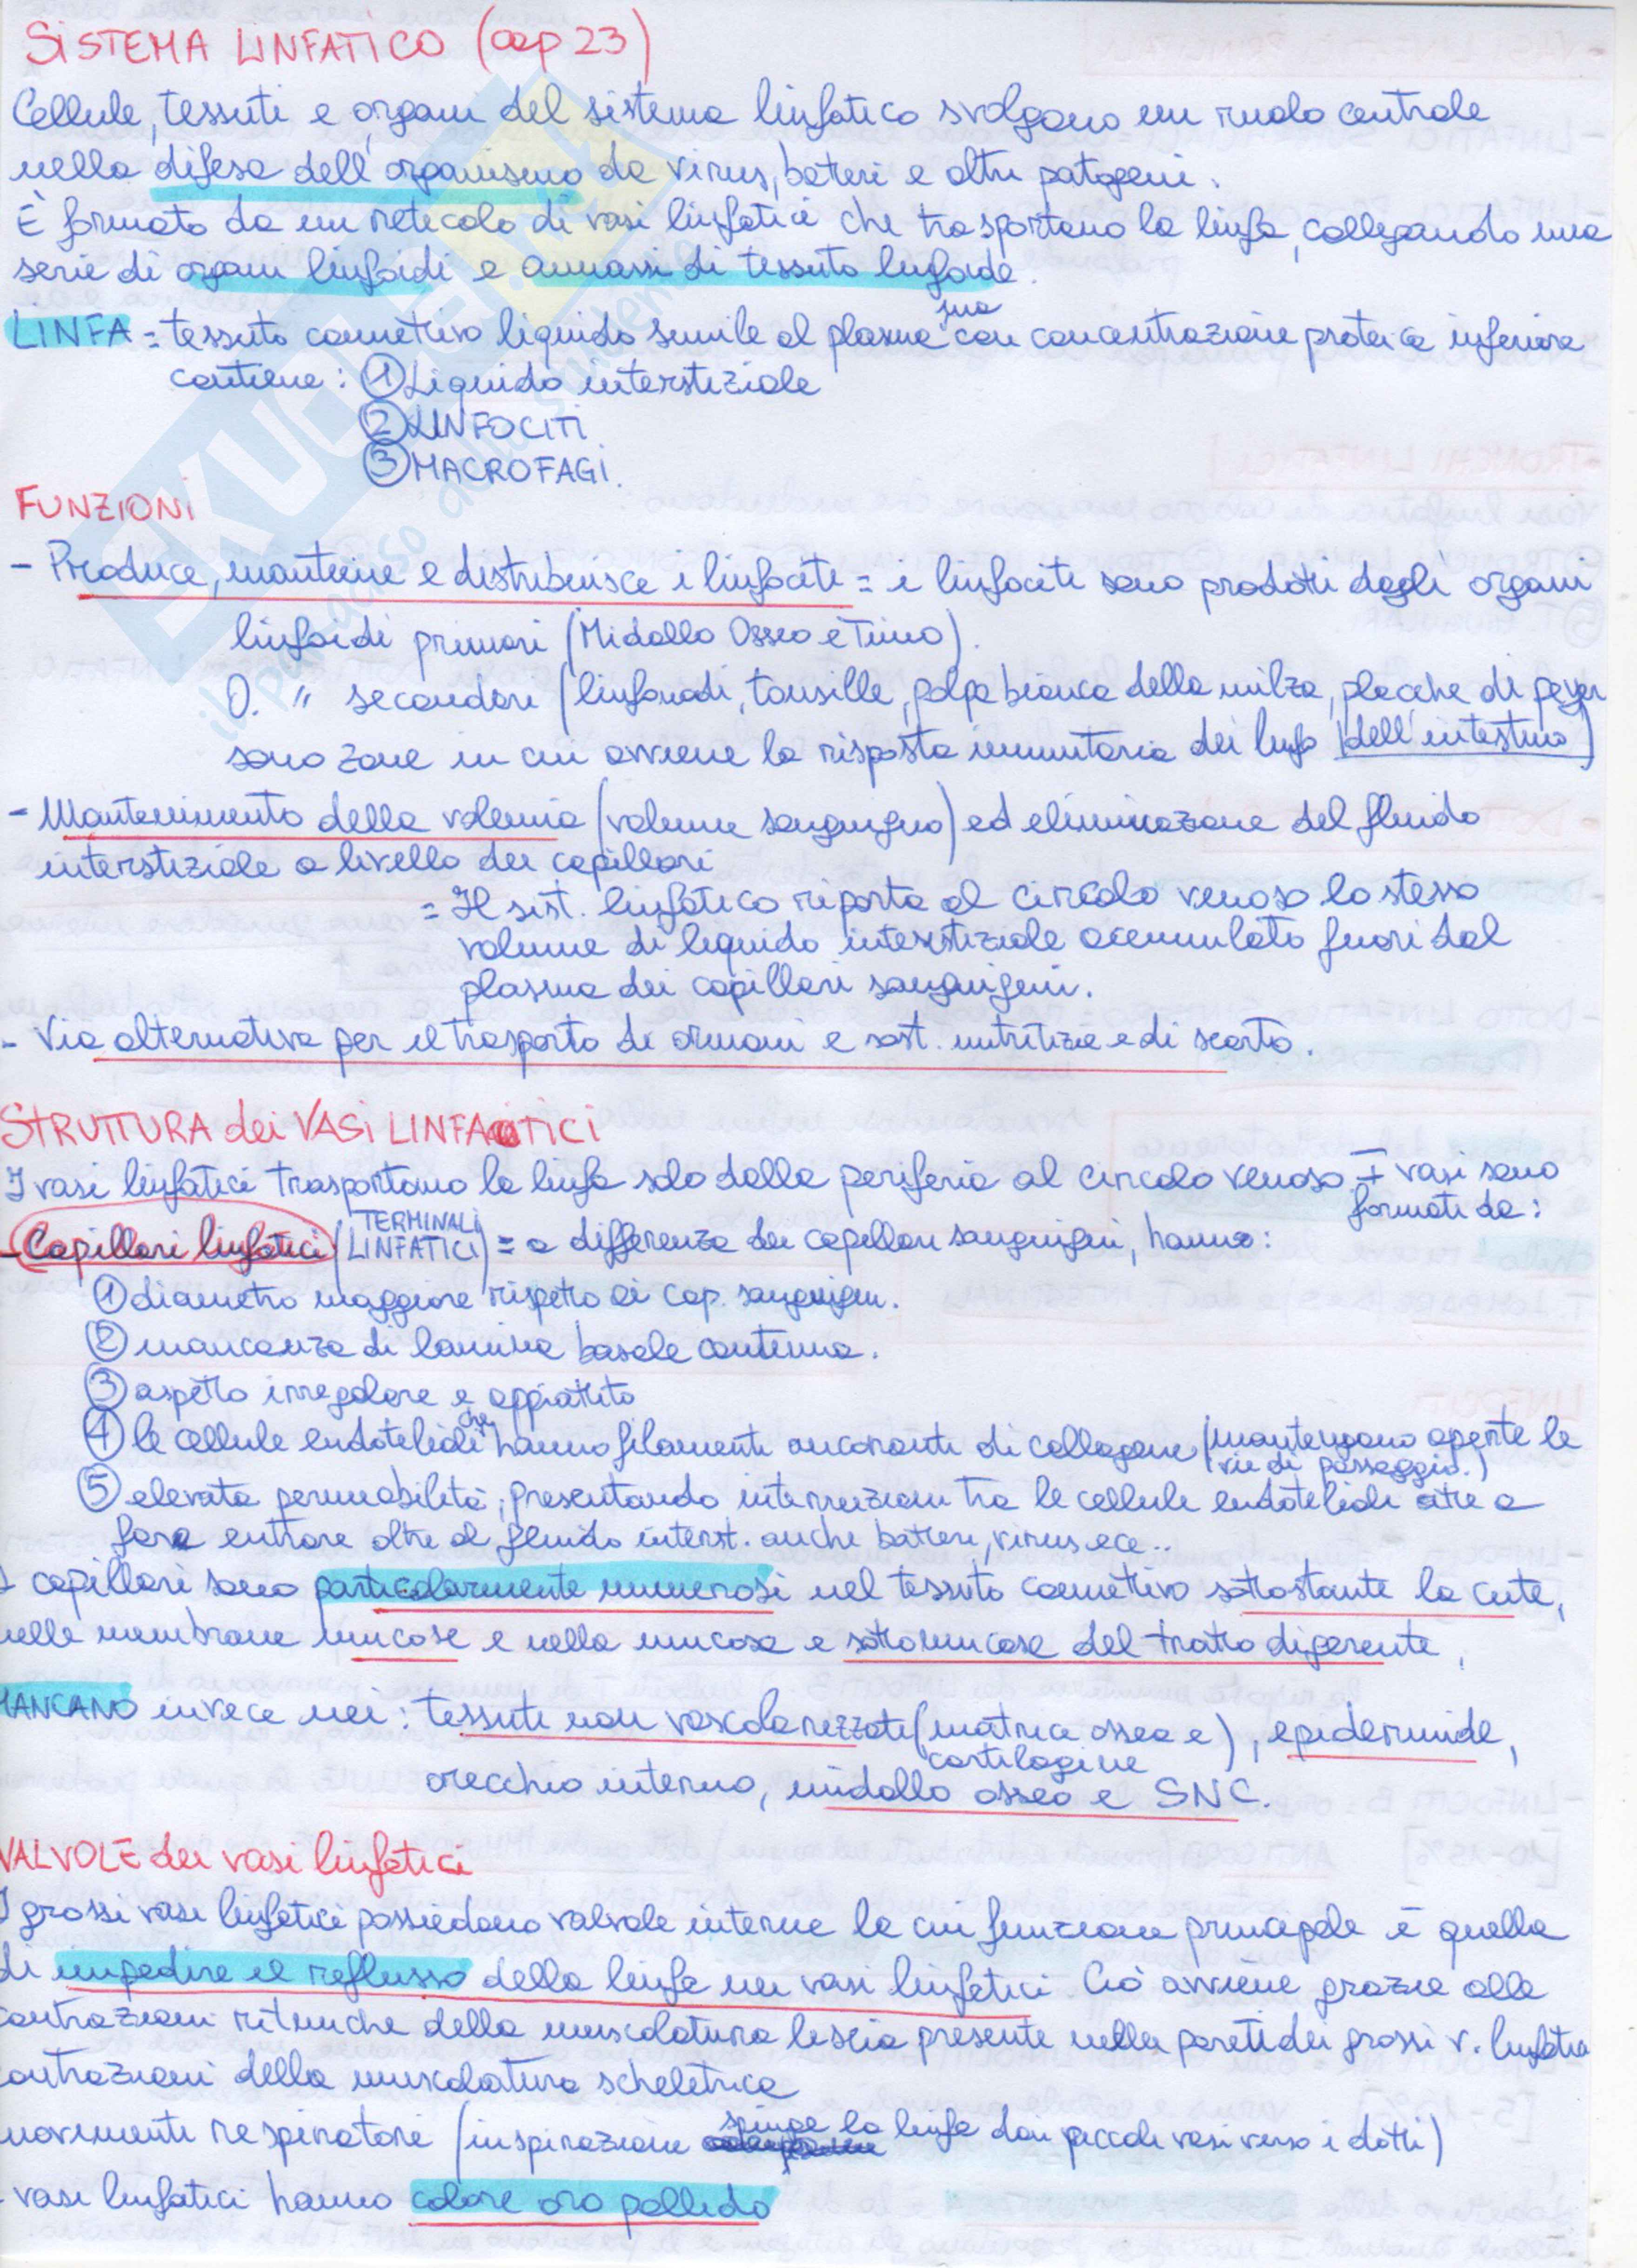 SISTEMA LINFATICO (cap 23)
Cellule, tessuti e organi del sistema linfatico svolgono un ruolo centrale
nella difesa dell'organismo da virus, batteri e altri patogeni.
È formato da un reticolo di vasi linfatici che trasportano la linfa, collegando una
serie di organi linfoidi e ammassi di tessuto linfoide.
LINFA = tessuto connettivo liquido simile al plasma ma con concentrazione proteica inferiore
contiene: ① Liquido interstiziale
② LINFOCITI
③ MACROFAGI.
FUNZIONI
- Produce, mantiene e distribuisce i linfociti = i linfociti sono prodotti dagli organi
linfoidi primari (Midollo Osseo e Timo).
O. " secondari (linfonodi, tonsille, polpa bianca della milza, placche di peyer
sono zone in cui avviene la risposta immunitaria dei linfo dell'intestino)
- Mantenimento della volemia (volume sanguigno) ed eliminazione del fluido
interstiziale a livello dei capillari
= Il sist. linfatico riporta al circolo venoso lo stesso
volume di liquido interstiziale accumulato fuori dal
plasma dei capillari sanguigni.
- Via alternativa per il trasporto di ormoni e sost. nutritizie e di scarto.
STRUTTURA dei VASI LINFATICI
I vasi linfatici trasportano la linfa solo dalla periferia al circolo venoso - I vasi sono
formati da:
- Capillari linfatici (TERMINALI LINFATICI) = a differenza dei capillari sanguigni, hanno:
① diametro maggiore rispetto ai cap. sanguigni.
② mancanza di lamina basale continua.
③ aspetto irregolare e appiattito
④ le cellule endoteliali che hanno filamenti ancoranti di collagene (mantengono aperte le
vie di passaggio.)
⑤ elevata permeabilità, presentando interruzioni tra le cellule endoteliali atte a
fare entrare oltre al fluido interst. anche batteri, virus ecc..
I capillari sono particolarmente numerosi nel tessuto connettivo sottostante la cute,
nelle membrane mucose e nella mucosa e sottomucosa del tratto digerente,
MANCANO invece nei: tessuti non vascolarizzati (matrice ossea e cartilagine), epidermide,
orecchio interno, midollo osseo e SNC.
VALVOLE dei vasi linfatici
I grossi vasi linfatici possiedono valvole interne la cui funzione principale è quella
di impedire il reflusso della linfa nei vasi linfatici. Ciò avviene grazie alle
contrazioni ritmiche della muscolatura liscia presente nelle pareti dei grossi v. linfatici
contrazioni della muscolatura scheletrica
movimenti respiratori (inspirazione spinge la linfa dai piccoli vasi verso i dotti)
- vasi linfatici hanno colore oro pallido